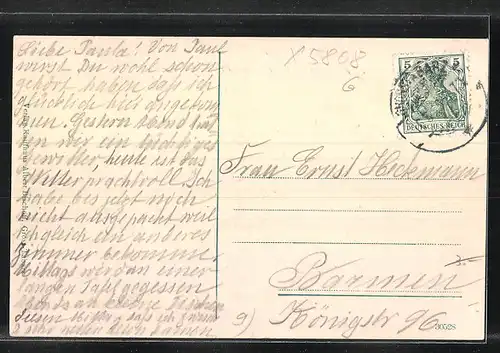 Liebe Paula! Von Paul
wirst Du wohl schon
gehört haben daß ich
glücklich hier angekom
men. Gestern Abend hat
ten wir ein
Gewitter, heute ist das
Wetter prachtvoll. Ich
habe bis jetzt noch
nicht ausgepackt weil
ich gleich ein anderes
Zimmer bekomme.
Mittags werden an einer
langen Tafel gegessen
Abends an kleine Tischen
diesen daß ich
X 5808
6
5 5
DEUTSCHES REICH
Frau Ernst Heckmann
Barmen
Königstr 96
9)
30528